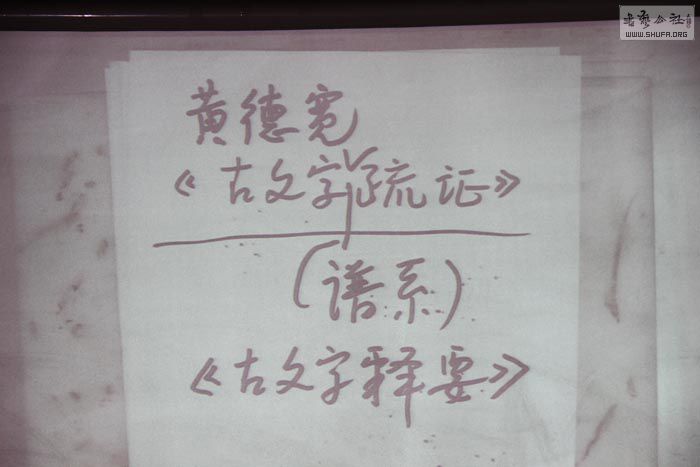 书艺公社
WWW.SHUFA.ORG
黄德宽
《古文字疏证》
(谱系)
《古文字释要》